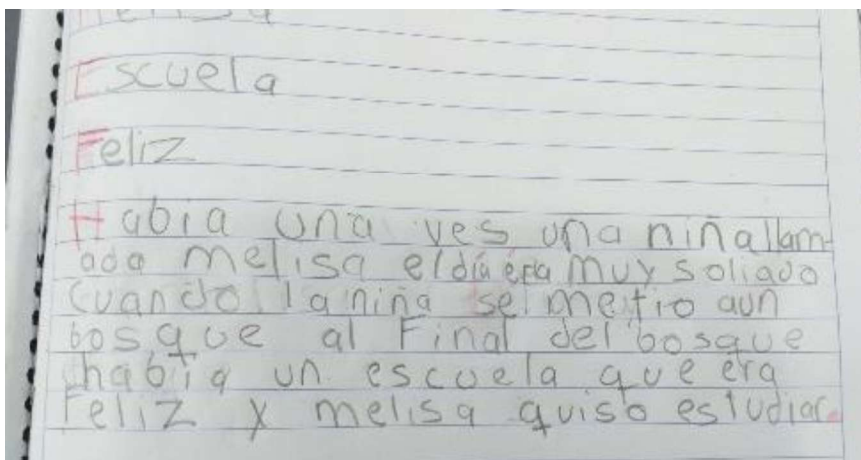 Melisa
Escuela
Feliz
Habia una ves una niña llam-
ada melisa el día era muy soliado
cuando la niña se metio aun
bosque al Final del bosque
habia un escuela que era
Feliz y melisa quiso estudiar.